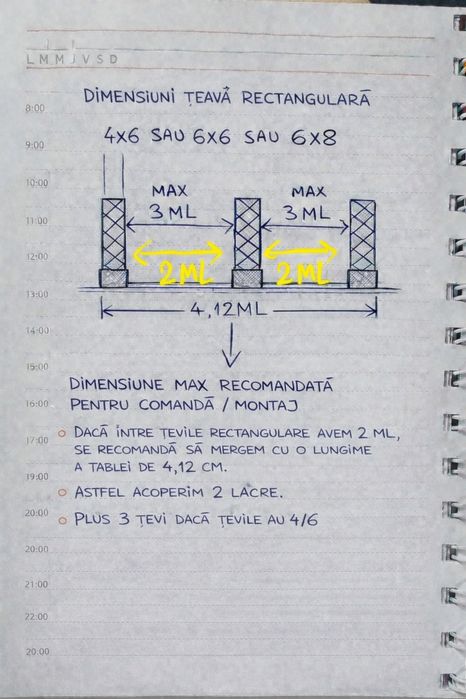 L M M J V S D
DIMENSIUNI ȚEAVĂ RECTANGULARĂ
8:00
4x6 SAU 6x6 SAU 6x8
9:00
10:00
MAX
3 ML
MAX
3 ML
11:00
12:00
2ML
2ML
13:00
4,12ML
14:00
15:00
DIMENSIUNE MAX RECOMANDATĂ
16:00
PENTRU COMANDĂ / MONTAJ
DACĂ ÎNTRE ȚEVILE RECTANGULARE AVEM 2 ML,
17:00
SE RECOMANDĂ SĂ MERGEM CU O LUNGIME
A TABLEI DE 4,12 CM.
19:00
ASTFEL ACOPERIM 2 LACRE.
20:00
PLUS 3 ȚEVI DACĂ ȚEVILE AU 4/6
20:00
21:00
22:00
20:00